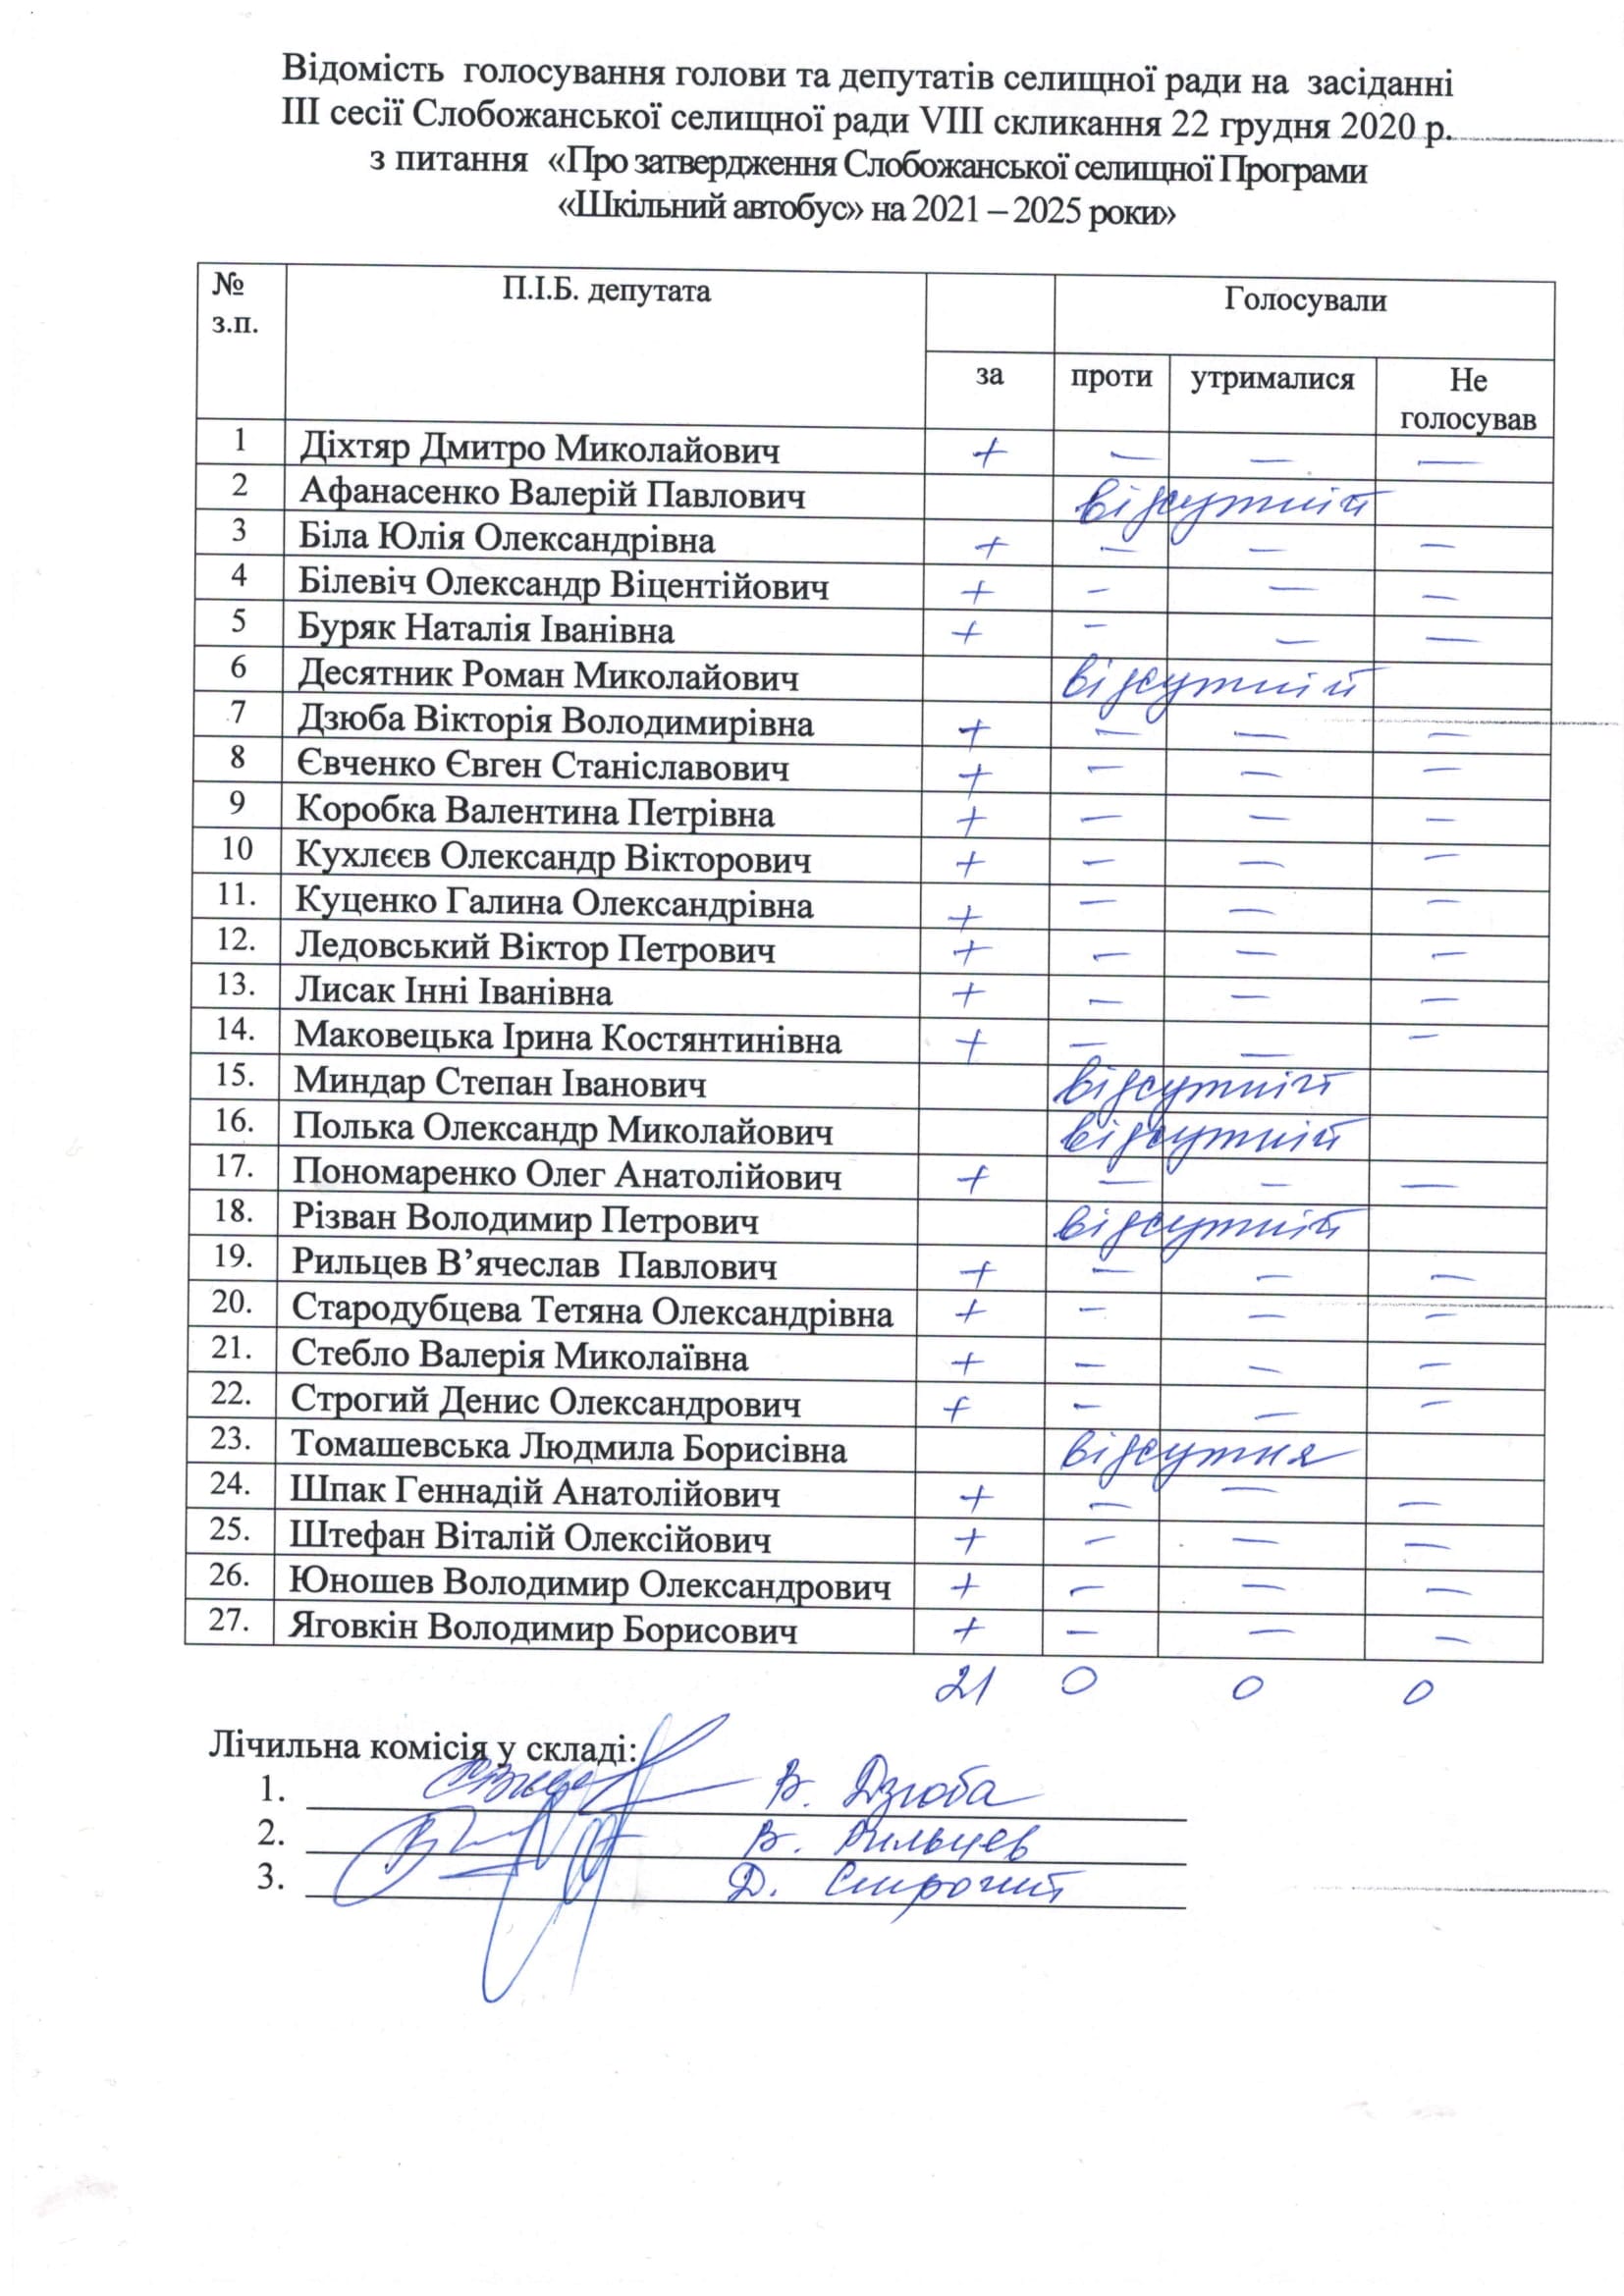 Відомість голосування голови та депутатів селищної ради на засіданні
ІІІ сесії Слобожанської селищної ради VIII скликання 22 грудня 2020 р.
з питання «Про затвердження Слобожанської селищної Програми
«Шкільний автобус» на 2021 – 2025 роки»
№ П.І.Б. депутата Голосували
з.п.
за проти утрималися Не
голосував
1 Діхтяр Дмитро Миколайович + — — —
2 Афанасенко Валерій Павлович відсутній
3 Біла Юлія Олександрівна + — — —
4 Білевіч Олександр Віцентійович + — — —
5 Буряк Наталія Іванівна + — — —
6 Десятник Роман Миколайович відсутній
7 Дзюба Вікторія Володимирівна + — — —
8 Євченко Євген Станіславович + — — —
9 Коробка Валентина Петрівна + — — —
10 Кухлєєв Олександр Вікторович + — — —
11. Куценко Галина Олександрівна + — — —
12. Ледовський Віктор Петрович + — — —
13. Лисак Інні Іванівна + — — —
14. Маковецька Ірина Костянтинівна + — — —
15. Миндар Степан Іванович відсутній
16. Полька Олександр Миколайович відсутній
17. Пономаренко Олег Анатолійович + — — —
18. Різван Володимир Петрович відсутній
19. Рильцев В’ячеслав Павлович + — — —
20. Стародубцева Тетяна Олександрівна + — — —
21. Стебло Валерія Миколаївна + — — —
22. Строгий Денис Олександрович + — — —
23. Томашевська Людмила Борисівна відсутня
24. Шпак Геннадій Анатолійович + — — —
25. Штефан Віталій Олексійович + — — —
26. Юношев Володимир Олександрович + — — —
27. Яговкін Володимир Борисович + — — —
21 0 0 0
Лічильна комісія у складі:
1. В. Дзюба
2. В. Рильцев
3. Д. Строгий